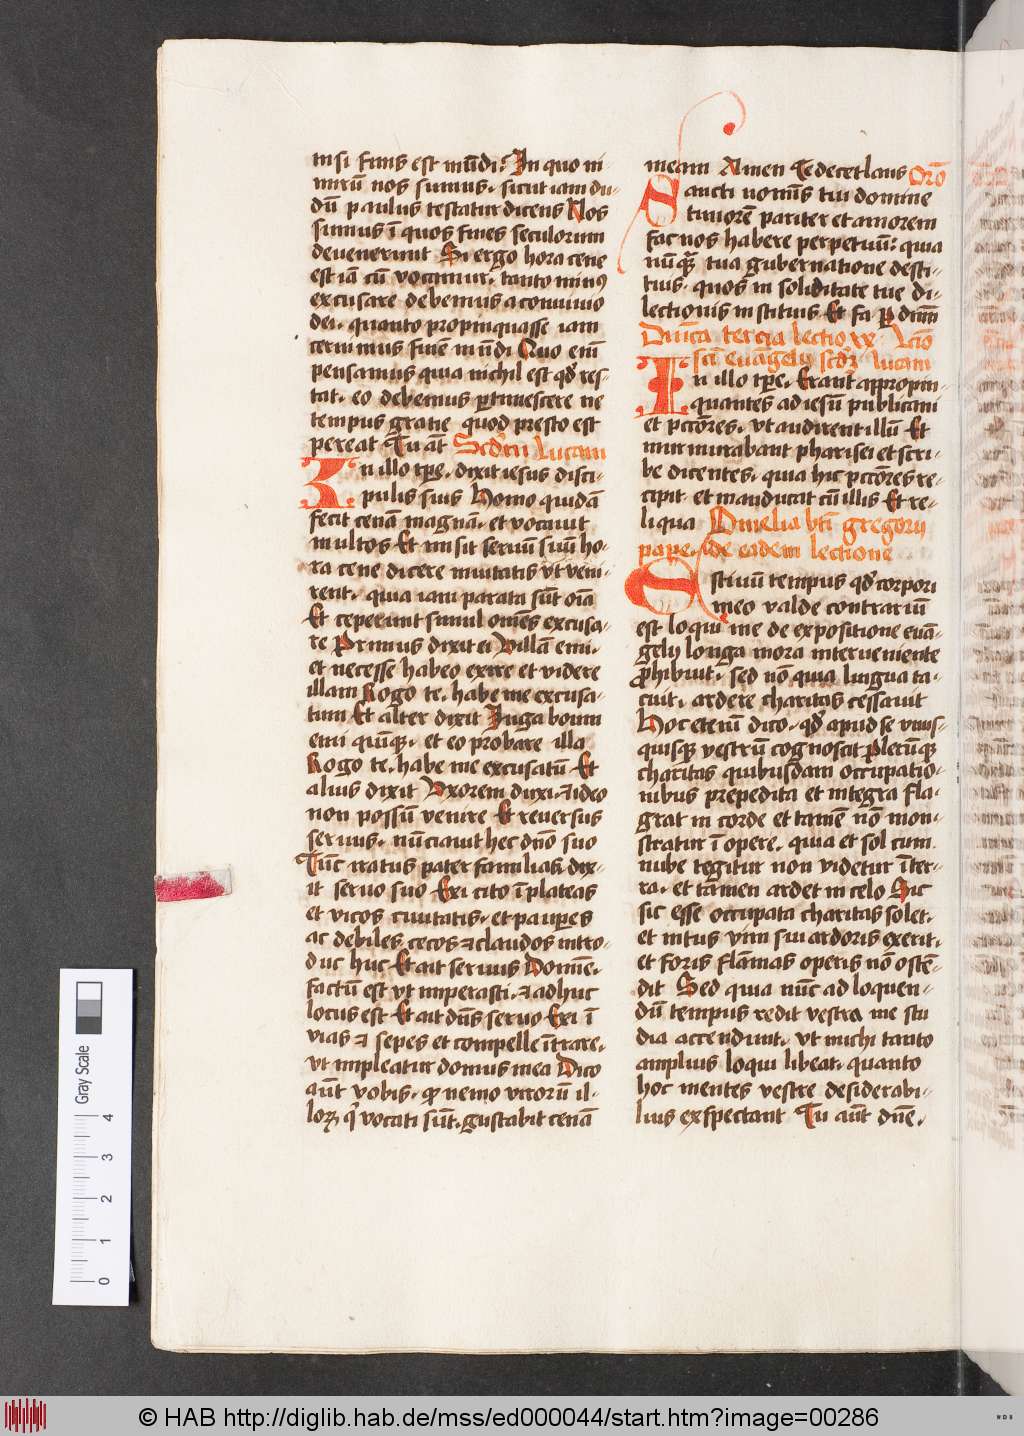 nisi finis est mūdi? In quo ni-
mirū nos sumus. sicut iam du-
dū paulus testatur dicens Nos
sumus ī quos fines seculorum
devenerunt Si ergo hora cene
est iā cū vocamur. tanto minꝰ
excusare debemus a convivio
dei. quanto propinquasse iam
cernimus finē mūdi Quo enī
pensamus quia nichil est qđ res-
tat. eo debemus ꝑtimescere ne
tempus gratie quod presto est
pereat Tu aūt Scđm Lucam
In illo tp̄e. dixit iesus disci-
pulis suis Homo quidā
fecit cenā magnā. et vocavit
multos Et misit servū suū ho-
ra cene dicere invitatis vt veni-
rent. quia iam parata sūt oīa
Et ceperunt simul omēs excusa-
re Primus dixit ei Villā emi.
et necesse habeo exire et videre
illam Rogo te. habe me excusa-
tum Et alter dixit Iuga boum
emi quīqꝫ. et eo probare illa
Rogo te. habe me excusatū Et
alius dixit Vxorem duxi. ⁊ ideo
non possū venire Et reversus
servus. nūciavit hec dn̄o suo
Tūc iratus pater familiaꝫ dix-
it servo suo Exi cito ī plateas
et vicos civitatis. et pauꝑes
ac debiles cecos ⁊ claudos intro-
duc huc Et ait servus Domīe.
factū est vt imperasti. ⁊ adhuc
locus est Et ait dn̄s servo Exi ī
vias ⁊ sepes et compelle ītrare.
vt impleatur domus mea Dico
aūt vobis. qꝫ nemo virorū il-
loꝝ qͥ vocati sūt. gustabit cenā
meam Amen Te decet laus Orō
Sancti nomīs tui domine
timorē pariter et amorem
fac nos habere perpetuū: quia
nūqꝫ tua gubernatione desti-
tuis. quos in soliditate tue di-
lectionis instituis Et fa ꝑ dn̄m
Dn̄ica tercia lectio xx Lcīo
scī evāgelii scđꝫ lucam
In illo tp̄e. Erant appropin-
quantes ad iesū publicani
et pctōres. vt audirent illū Et
murmurabant pharisei et scri-
be dicentes. quia hic pctōres re-
cipit et manducat cū illis Et re-
liqua Omelia btī gregorii
pape. de eadem lectione
Estivū tempus qđ corpori
meo valde contrariū
est loqui me de expositione evā-
gelii longa mora interveniente
ꝓhibuit. sed nō quia lingua ta-
cuit. ardere charitas cessavit
Hoc eteni dico. qđ apud se vnus-
quisqꝫ vestrū cognoscit Plerūqꝫ
charitas quibusdam occupatio-
nibus prepedita et integra fla-
grat in corde et tamē nō mon-
stratur ī opere. quia et sol cum
nube tegitur non videtur ī ter-
ra. et tamen ardet in celo Sic
sic esse occupata charitas solet.
et intus vim sui ardoris exerit.
et foris flāmas operis nō ostē-
dit Sed quia nūc ad loquen-
dū tempus redit vestra me stu
dia accendunt. vt michi tanto
amplius loqui libeat. quanto
hoc mentes vestre desiderabi-
lius exspectant Tu aūt dn̄e.
Gray Scale
0 1 2 3 4
© HAB http://diglib.hab.de/mss/ed000044/start.htm?image=00286